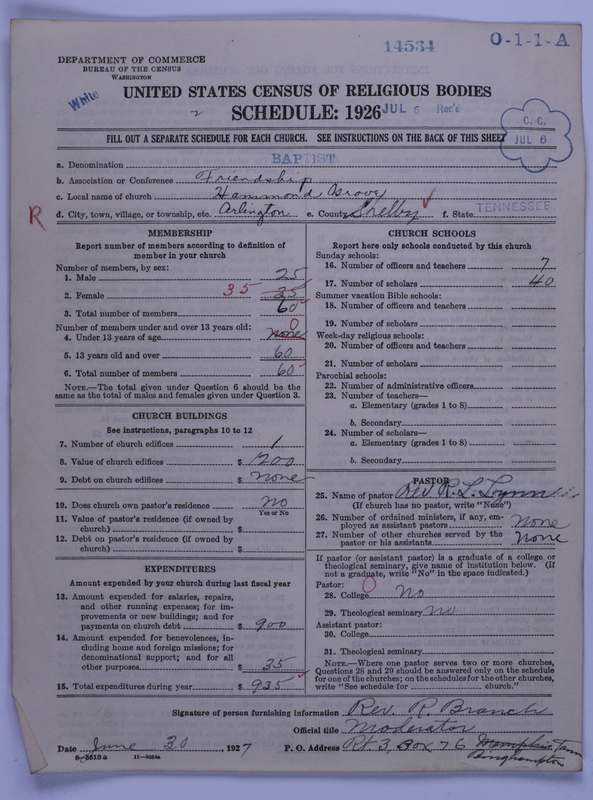 14534
O-1-1-A
DEPARTMENT OF COMMERCE
BUREAU OF THE CENSUS
WASHINGTON
White
UNITED STATES CENSUS OF RELIGIOUS BODIES
SCHEDULE: 1926
JUL 6 Rec'd
C. C.
JUL 6
FILL OUT A SEPARATE SCHEDULE FOR EACH CHURCH. SEE INSTRUCTIONS ON THE BACK OF THIS SHEET
a. Denomination BAPTIST
b. Association or Conference Friendship
c. Local name of church Hammond Grove
R d. City, town, village, or township, etc. Arlington e. County Shelby f. State TENNESSEE
MEMBERSHIP
Report number of members according to definition of
member in your church
Number of members, by sex:
1. Male 25
2. Female 35 35
3. Total number of members 60
Number of members under and over 13 years old:
4. Under 13 years of age none 0
5. 13 years old and over 60
6. Total number of members 60
NOTE.—The total given under Question 6 should be
the same as the total of males and females given under Question 3.
CHURCH BUILDINGS
See instructions, paragraphs 10 to 12
7. Number of church edifices 1
8. Value of church edifices $ 1200
9. Debt on church edifices $ none
10. Does church own pastor's residence no
Yes or No
11. Value of pastor's residence (if owned by
church) $
12. Debt on pastor's residence (if owned by
church) $
EXPENDITURES
Amount expended by your church during last fiscal year
13. Amount expended for salaries, repairs,
and other running expenses; for im-
provements or new buildings; and for
payments on church debt $ 900
14. Amount expended for benevolences, in-
cluding home and foreign missions; for
denominational support; and for all
other purposes $ 35
15. Total expenditures during year $ 935
CHURCH SCHOOLS
Report here only schools conducted by this church
Sunday schools:
16. Number of officers and teachers 7
17. Number of scholars 40
Summer vacation Bible schools:
18. Number of officers and teachers
19. Number of scholars
Week-day religious schools:
20. Number of officers and teachers
21. Number of scholars
Parochial schools:
22. Number of administrative officers
23. Number of teachers—
a. Elementary (grades 1 to 8)
b. Secondary
24. Number of scholars—
a. Elementary (grades 1 to 8)
b. Secondary
PASTOR
25. Name of pastor Rev. R. L. Lynn
(If church has no pastor, write "None")
26. Number of ordained ministers, if any, em-
ployed as assistant pastors none
27. Number of other churches served by the
pastor or his assistants none
If pastor (or assistant pastor) is a graduate of a college or
theological seminary, give name of institution below. (If
not a graduate, write "No" in the space indicated.)
Pastor: 0
28. College No
29. Theological seminary no
Assistant pastor:
30. College
31. Theological seminary
NOTE.—Where one pastor serves two or more churches,
Questions 28 and 29 should be answered only on the schedule
for one of the churches; on the schedules for the other churches,
write "See schedule for church."
Signature of person furnishing information Rev. R. Branch
Official title Moderator
Date June 30, 1927 P. O. Address Rt 3, Box 76 Memphis Tenn
Binghampton
8-5618 a